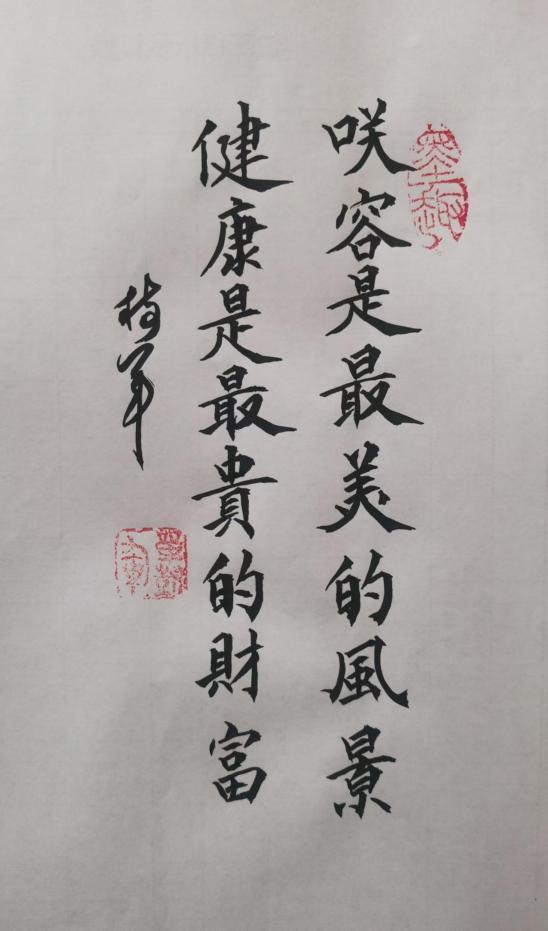 咲容是最美的風景
健康是最貴的財富